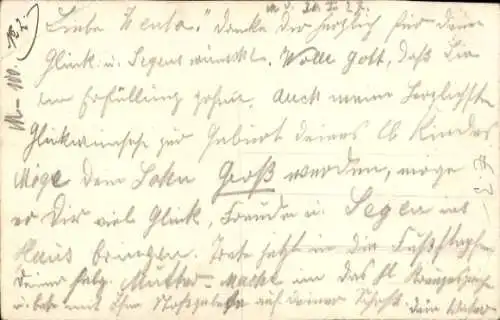 Liebe Herta! Danke Dir herzlich für deine
Glück u. Segenswünsche. Wolle Gott, daß Sie
in Erfüllung gehen. Auch meine herzlichsten
Glückwünsche zur Geburt deines lb Kindes
Möge dein Sohn Groß werden, möge
er Dir viel Glück, Freude u. Segen ins
Haus bringen. Trete jetzt in die Fußstapfen
Deiner sel. Mutter
u. bete mit auf deiner